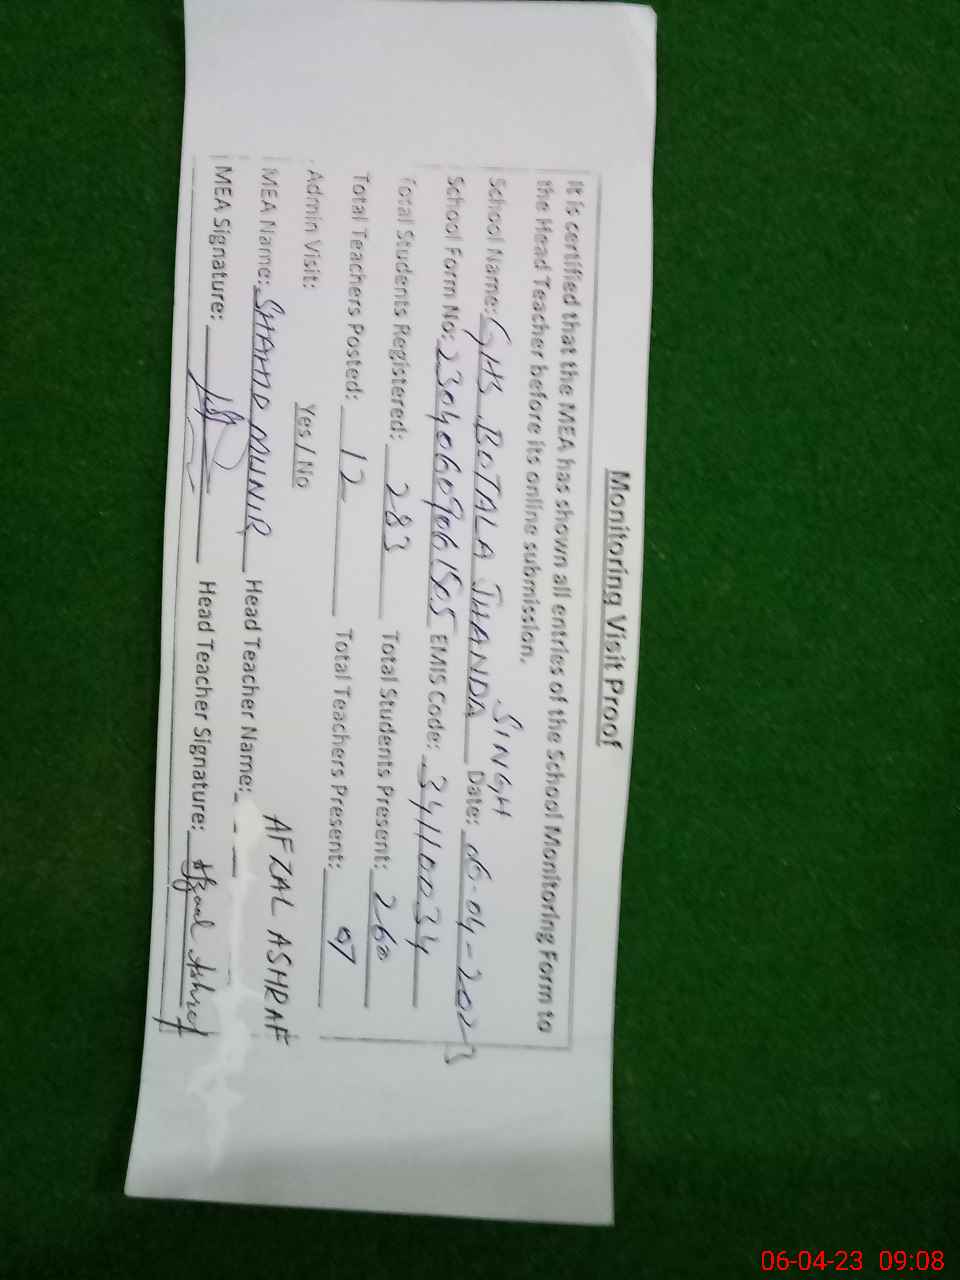 Monitoring Visit Proof
It is certified that the MEA has shown all entries of the School Monitoring Form to
the Head Teacher before its online submission.
SINGH
School Name: GHS BOTALA JHANDA Date: 06-04-2023
School Form No: 23040609061505 EMIS Code: 34110034
Total Students Registered: 283 Total Students Present: 260
Total Teachers Posted: 12 Total Teachers Present: 07
Admin Visit: Yes / No
AFZAL ASHRAF
MEA Name: SHAHID MUNIR Head Teacher Name:
MEA Signature: Head Teacher Signature: Afzal Ashraf
06-04-23 09:08